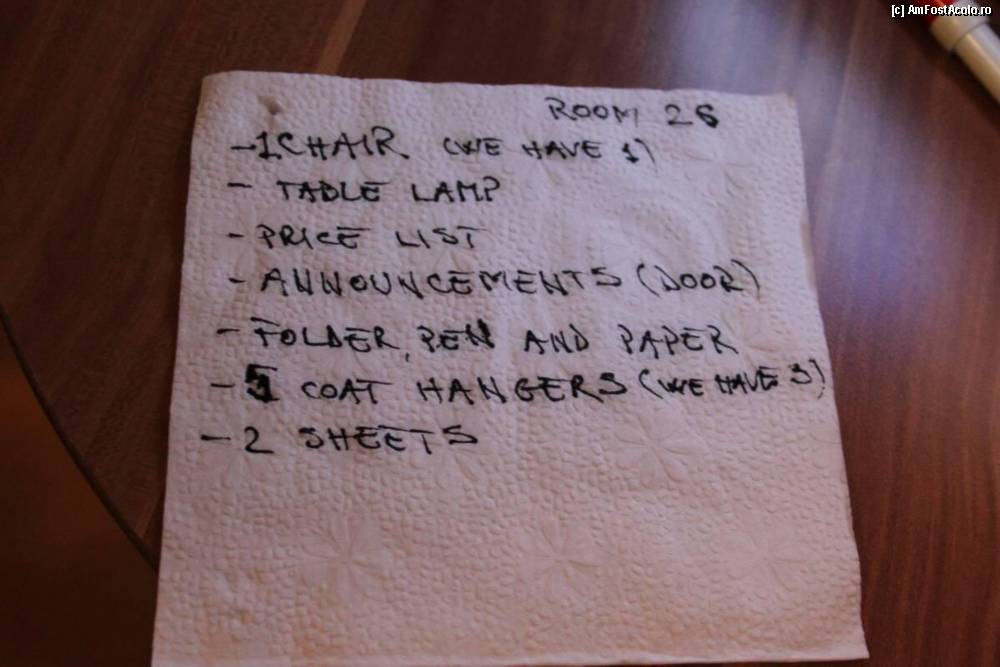 [c] AmFostAcolo.ro
ROOM 26
-1 CHAIR. (WE HAVE 1)
- TABLE LAMP
- PRICE LIST
- ANNOUNCEMENTS (DOOR)
- FOLDER, PEN AND PAPER
- 5 COAT HANGERS (WE HAVE 3)
- 2 SHEETS